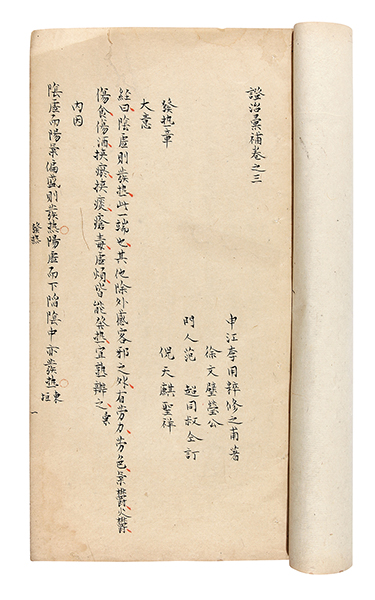 證治彙補卷之三
申江李用粹修之甫著
徐文璧瑩公
門人范 超同叔仝訂
倪天麒聖祥
發熱章
大意
經曰陰虛則發熱此一端也其他除外感客邪之外有勞力勞色氣鬱火鬱
傷食傷酒挾瘀挾痰瘡毒虛煩皆能發熱宜熟辨之彙
內因
陰虛而陽氣偏盛則發熱陽虛而下陷陰中亦發熱東垣
發熱 一